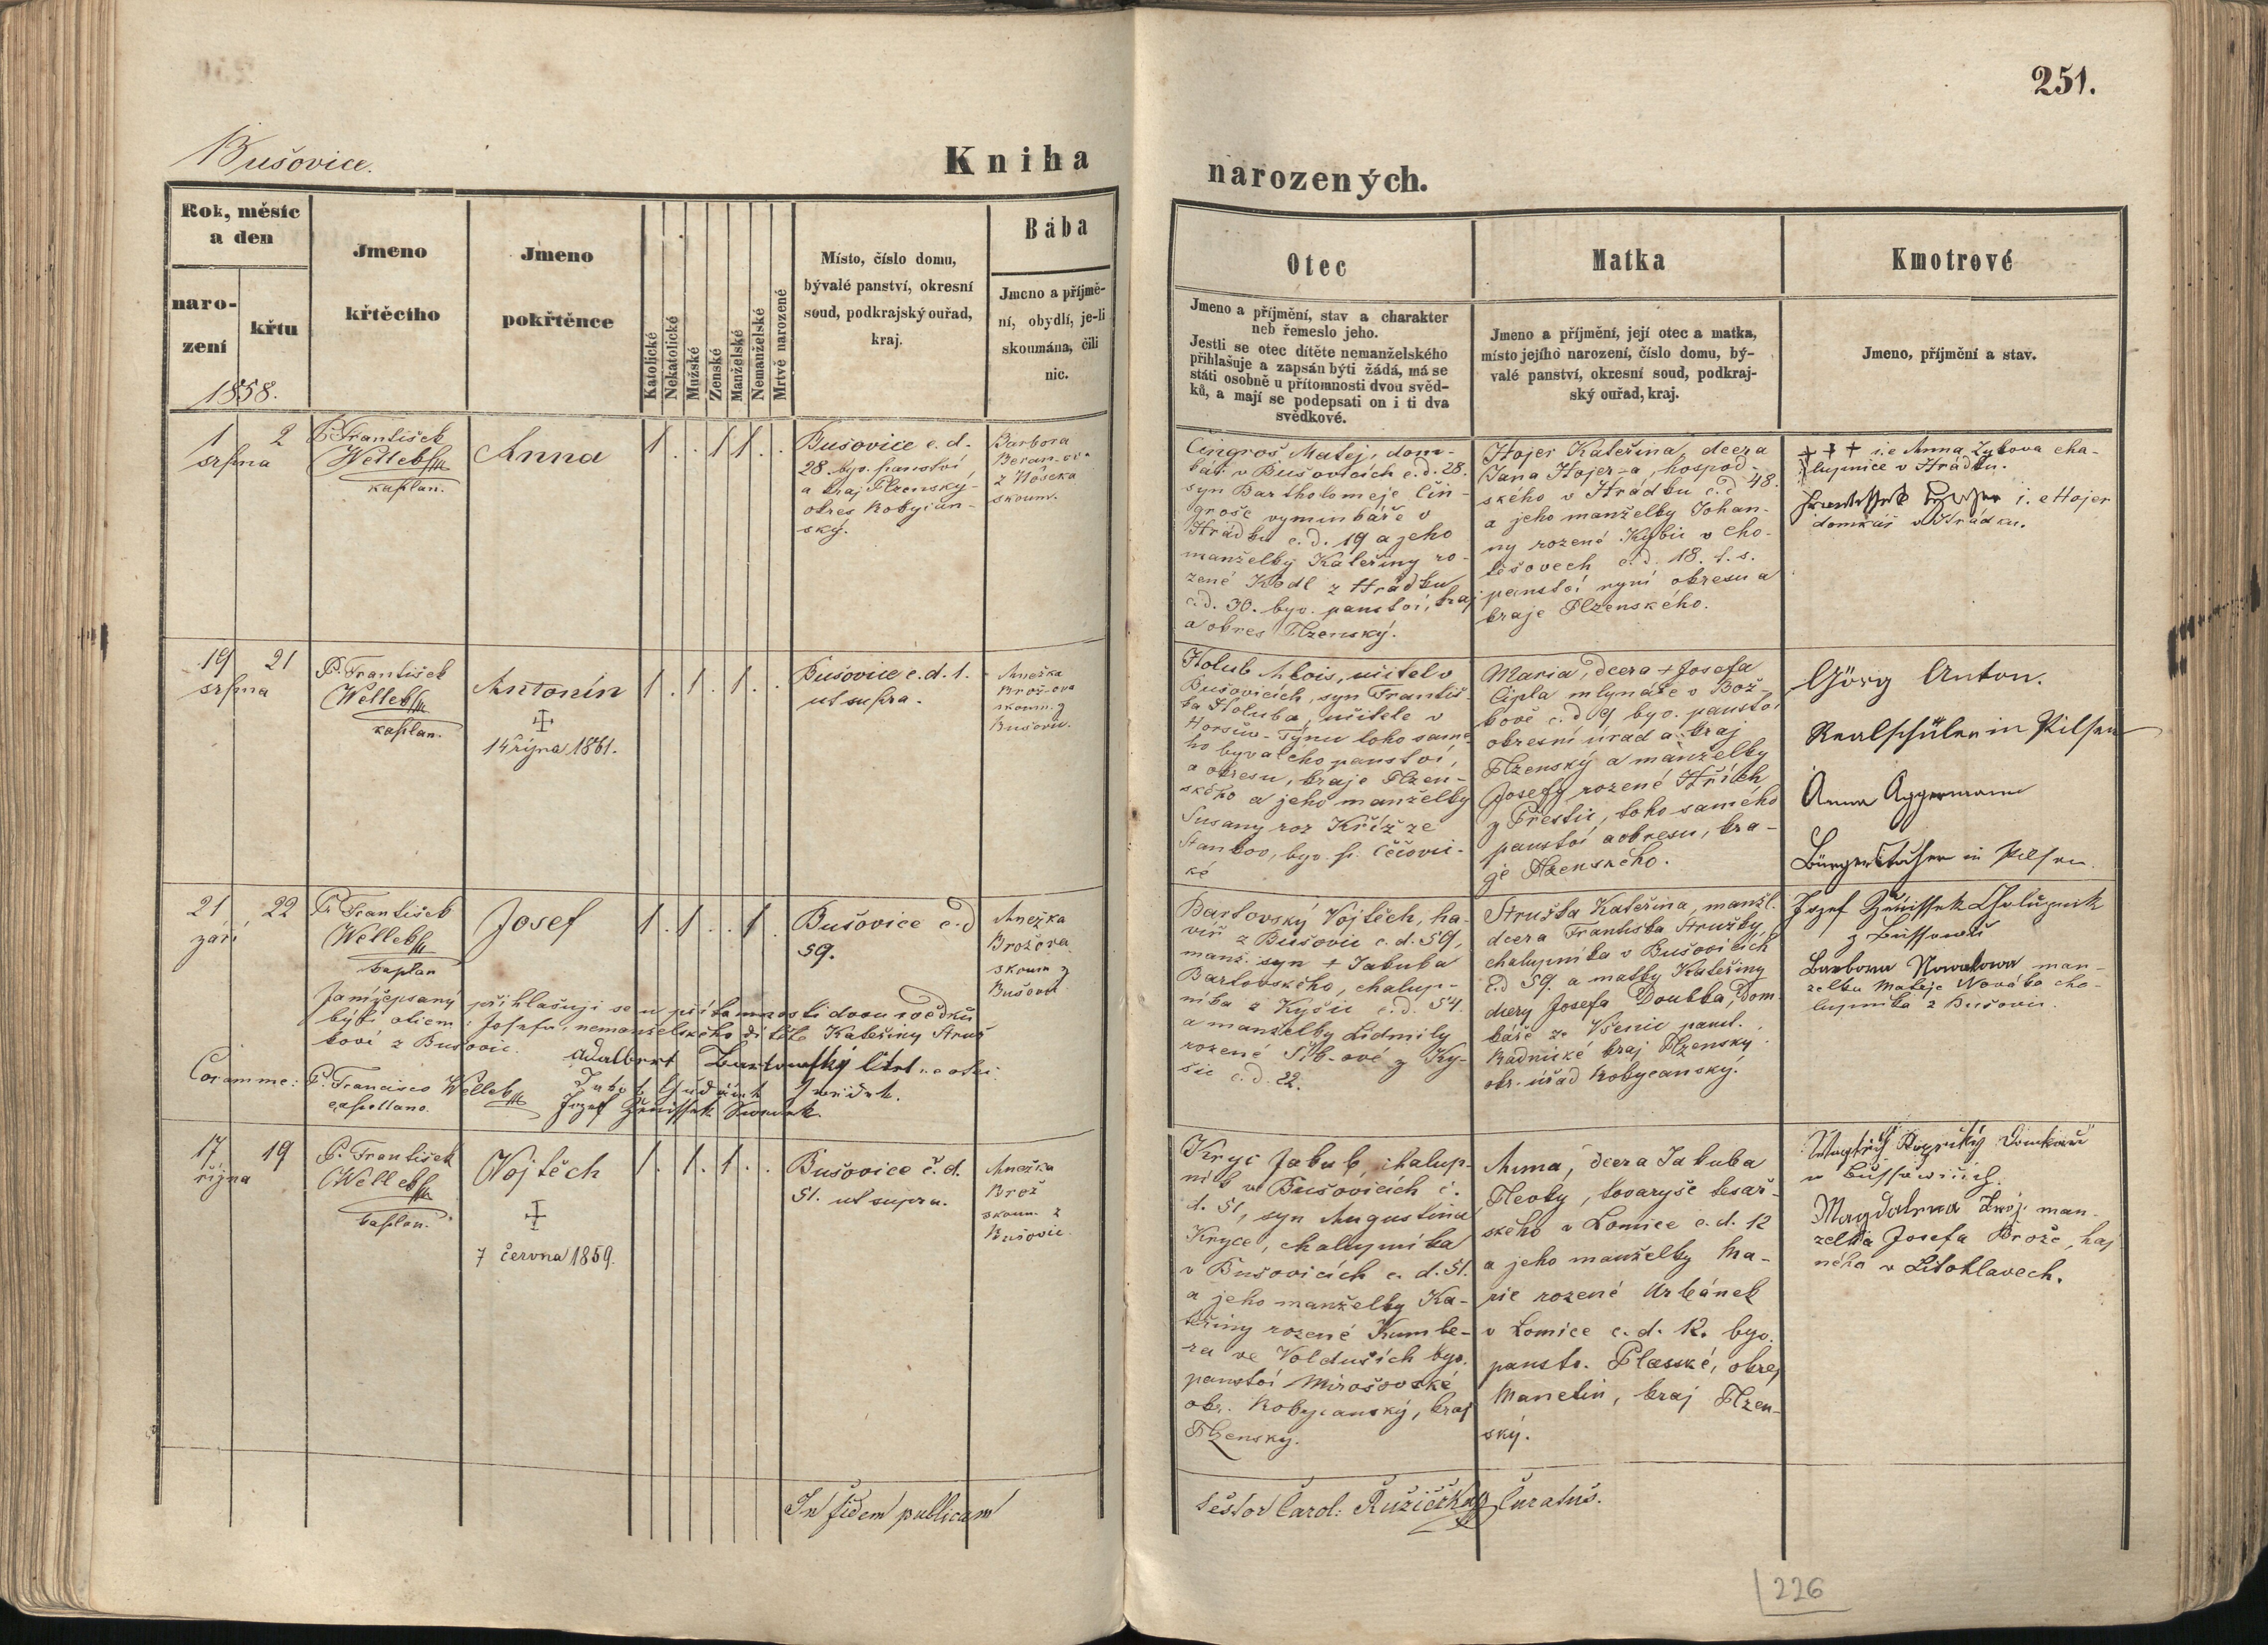 251.
Bušovice.
Kniha
narozených.
Rok, měsíc
a den
naro-
zení
křtu
1858.
Jmeno
křtěcího
Jmeno
pokřtěnce
Katolické
Nekatolické
Mužské
Ženské
Manželské
Nemanželské
Mrtvě narozené
Místo, číslo domu,
bývalé panství, okresní
soud, podkrajský ouřad,
kraj.
Bába
Jmeno a příjmě-
ní, obydlí, je-li
skoumána, čili
nic.
Otec
Jmeno a příjmění, stav a charakter
neb řemeslo jeho.
Jestli se otec dítěte nemanželského
přihlašuje a zapsán býti žádá, má se
státi osobně u přítomnosti dvou svěd-
ků, a mají se podepsati on i ti dva
svědkové.
Matka
Jmeno a příjmění, její otec a matka,
místo jejího narození, číslo domu, bý-
valé panství, okresní soud, podkraj-
ský ouřad, kraj.
Kmotrové
Jmeno, příjmění a stav.
1 2
srpna
P. František
Welleb
kaplan.
Anna
1 . . 1 1 . .
Bušovice č. d.
28. byv. panství
a kraj Plzenský-
okres Rokycan-
ský.
Barbora
Beran-ova
z Vôseka
skoum.
Čingroš Matej, dom-
kář v Bušovicích č. d. 28.
syn Bartholoměje Čin-
groše vyminkáře v
Hrádku č. d. 19 a jeho
manželky Kateřiny ro-
zené Kodl z Hrádku
č. d. 30. byv. panství, kraj
a okres Plzenský.
Hojer Kateřina, dcera
Jana Hojer-a, hospod-
ského v Hrádku č. d. 48.
a jeho manželky Johan-
ny rozené Kybic v Cho-
těšovech č. d. 18. t. s.
panství nyní okresu a
kraje Plzenského.
+ + + i. e Anna Zykova cha-
lupnice v Hrádku.
i. e Hojer
domkář v Hrádku.
19 21
srpna
P. František
Welleb
kaplan.
Antonín
14 října 1861.
1 . 1 . 1 . .
Bušovice č. d. 1.
ut supra.
Anežka
Brož-ova
skoum. z
Bušovic.
Holub Alois, učitel v
Bušovicích, syn Františ-
ka Holuba, učitele v
Horšův-Týnu toho samé-
ho byvalého panství,
a okresu, kraje Plzen-
ského a jeho manželky
Susany roz Kříž ze
Stankov, byv. p. Čečovic-
ké
Maria, dcera + Josefa
Cipla mlynáře v Bož-
kově č. d. 9 byv. panství
okresní úrad a kraj
Plzenský a manželky
Josefy rozené Hřích
z Přestic, toho samého
panství a okresu, kra-
je Plzenského.
Görg Anton.
Realschüler in Pilsen
Anna Aggermann
Bürgerstochter in Pilsen.
21 22
září
P. František
Welleb
kaplan
Josef
1 . 1 . . 1 .
Bušovice č. d
59.
Anežka
Brožova
skoum z
Bušovic.
Bartovský Vojtěch, ha-
víř z Bušovic č. d. 59,
manž. syn + Jakuba
Bartovského, chalup-
níka z Kyšic č. d. 54.
a manželky Lidmily
rozené Šíb-ové z Ky-
šic č. d. 22.
Struska Kateřina, manžl.
dcera Františka Strusky,
chalupníka v Bušovicích
č. d 59. a matky Kateřiny
dcery Josefa Doubka, dom-
káře ze Všenic panst.
Radnické kraj Plzenský
okr. úřad Rokycanský.
Jozef Ženissek Chalupnik
z Bussowic
Barbora Nowakowa man-
zelka Mateje Nováka cha-
lupnika z Bušovic.
Já nížepsaný přihlašuji se u přítomnosti dvou svědků
býti otcem Josefa, nemanželského dítěte Kateřiny Strus
kové z Bušovic.
Adalbert Bartowský
Coram me: P. Francisco Welleb
capellano.
Jozef Ženissek Swedek.
17 19
října
P. František
Welleb
kaplan.
Vojtěch
7 června 1859.
1 . 1 . 1 . .
Bušovice č. d.
51. ut supra.
Anežka
Brož
skoum. z
Bušovic.
Kryc Jakub, chalup-
ník v Bušovicích č.
d. 51, syn Augustina
Kryce, chalupníka
v Bušovicích č. d. 51.
a jeho manželky Ka-
teřiny rozené Kumbe-
ra ve Volduších byv.
panství Mirošovské
okr. Rokycanský, kraj
Plzenský.
Anna, dcera Jakuba
Flevky, tovaryše tesař-
ského v Lomice č. d. 12
a jeho manželky Ma-
rie rozené Urbánek
v Lomice č. d. 12. byv.
panstv. Plasské, okres
Manetin, kraj Plzen-
ský.
Magdalena man-
zelka Josefa Brože, haj
ného v Litohlavech.
In fidem publicam
Nestor Carol: Ružička Curatus.
226